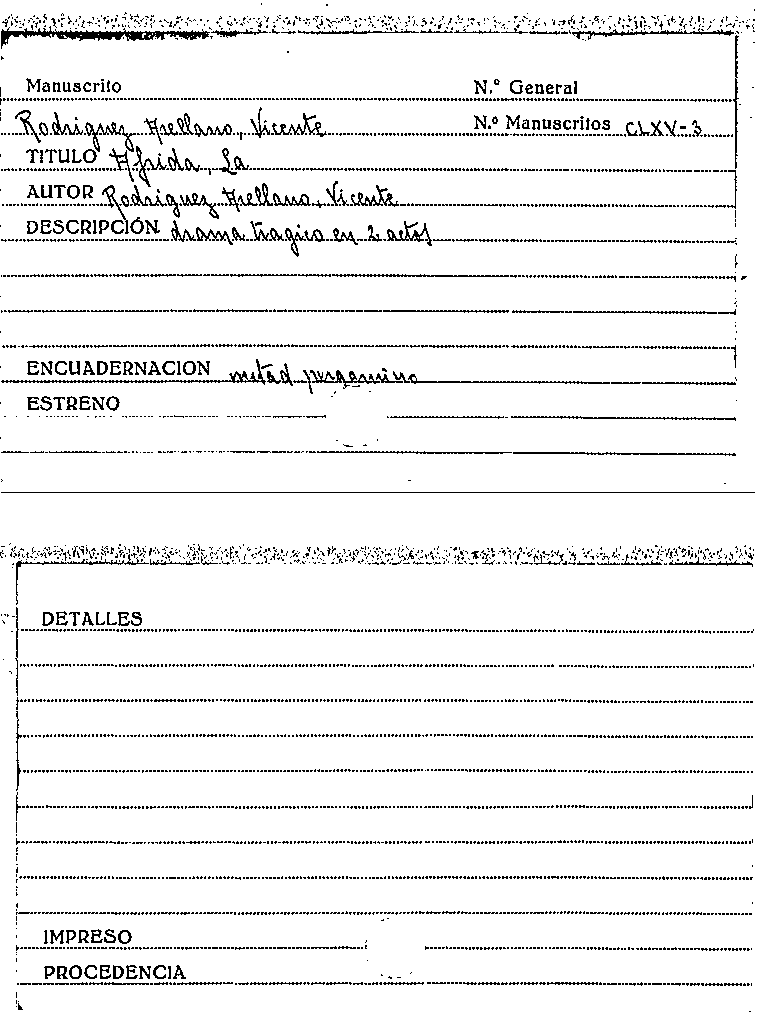 Manuscrito N.º General
Rodriguez Arellano, Vicente N.º Manuscritos CLXV-3
TITULO Afrida, La
AUTOR Rodriguez Arellano, Vicente
DESCRIPCIÓN drama tragico en 2 actos
ENCUADERNACION mitad pergamino
ESTRENO
DETALLES
IMPRESO
PROCEDENCIA